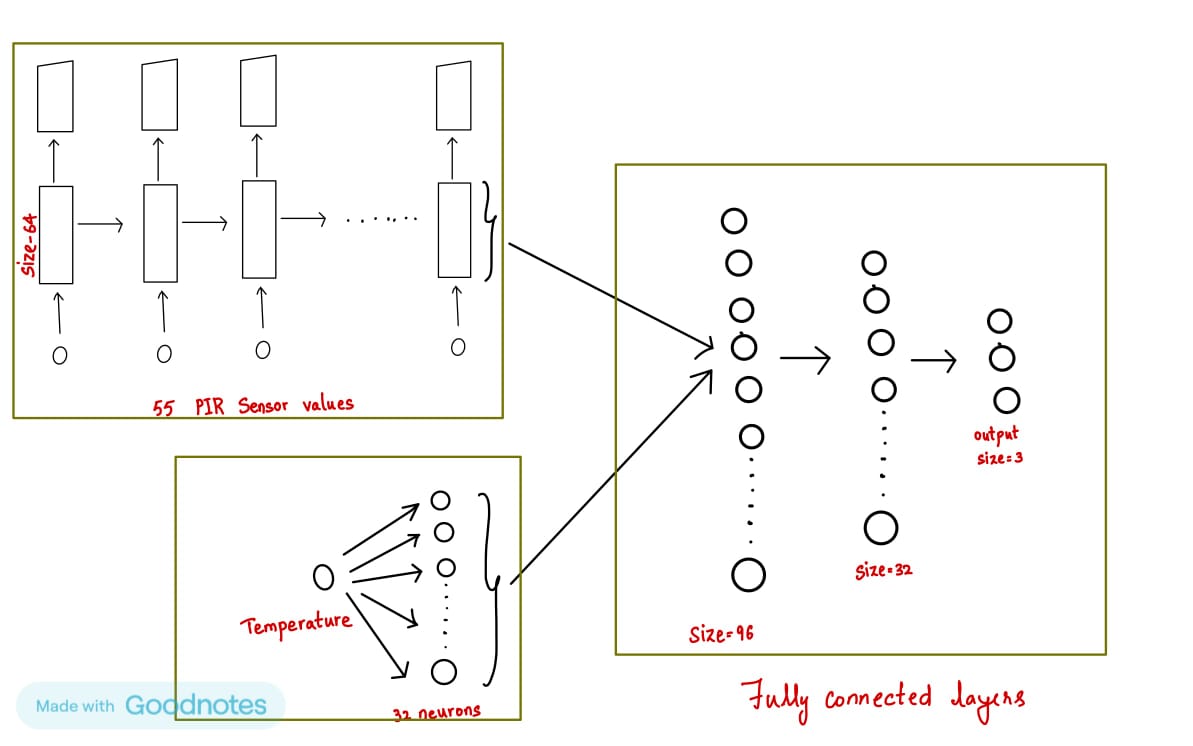 Size-64
55 PIR Sensor values
Temperature
32 neurons
Size=96
Size=32
output
size=3
Fully connected layers
Made with Goodnotes